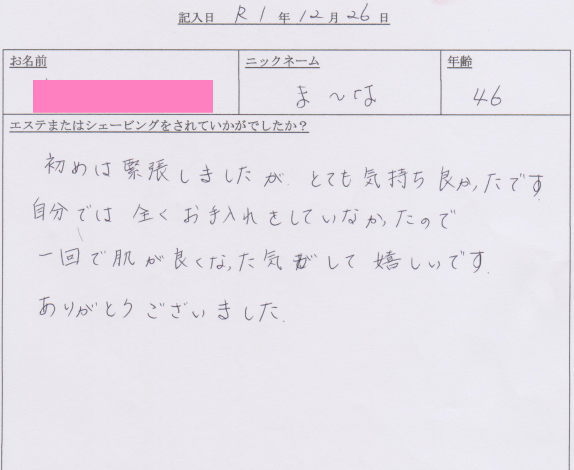 記入日 R1年12月26日
お名前 ニックネーム 年齢
ま〜は 46
エステまたはシェービングをされていかがでしたか？
初めは緊張しましたが、とても気持ち良かったです。
自分では全くお手入れをしていなかったので
一回で肌が良くなった気がして嬉しいです。
ありがとうございました。